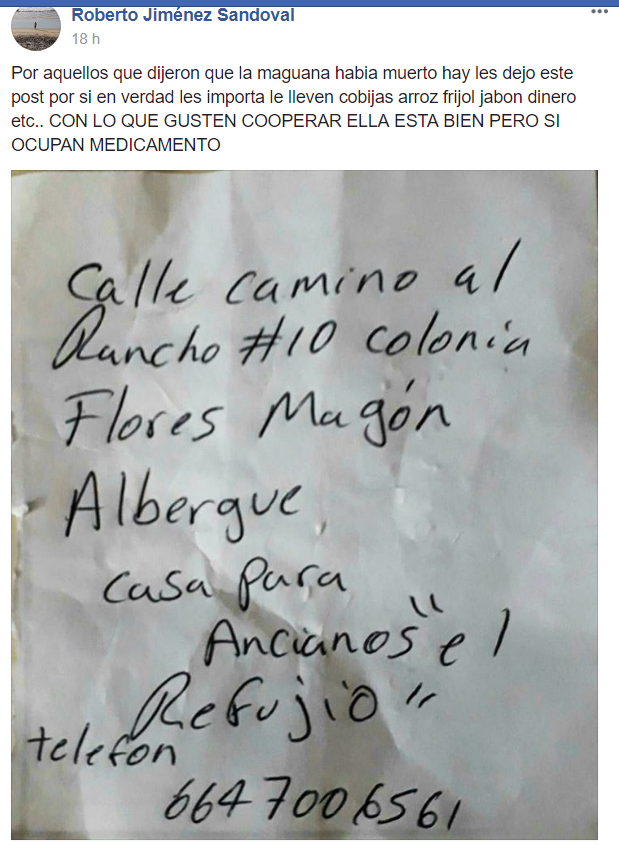 Roberto Jiménez Sandoval
18 h
Por aquellos que dijeron que la maguana habia muerto hay les dejo este
post por si en verdad les importa le lleven cobijas arroz frijol jabon dinero
etc.. CON LO QUE GUSTEN COOPERAR ELLA ESTA BIEN PERO SI
OCUPAN MEDICAMENTO
Calle camino al
Rancho #10 colonia
Flores Magón
Albergue,
casa para
Ancianos "el
Refujio"
telefon
664 7006561